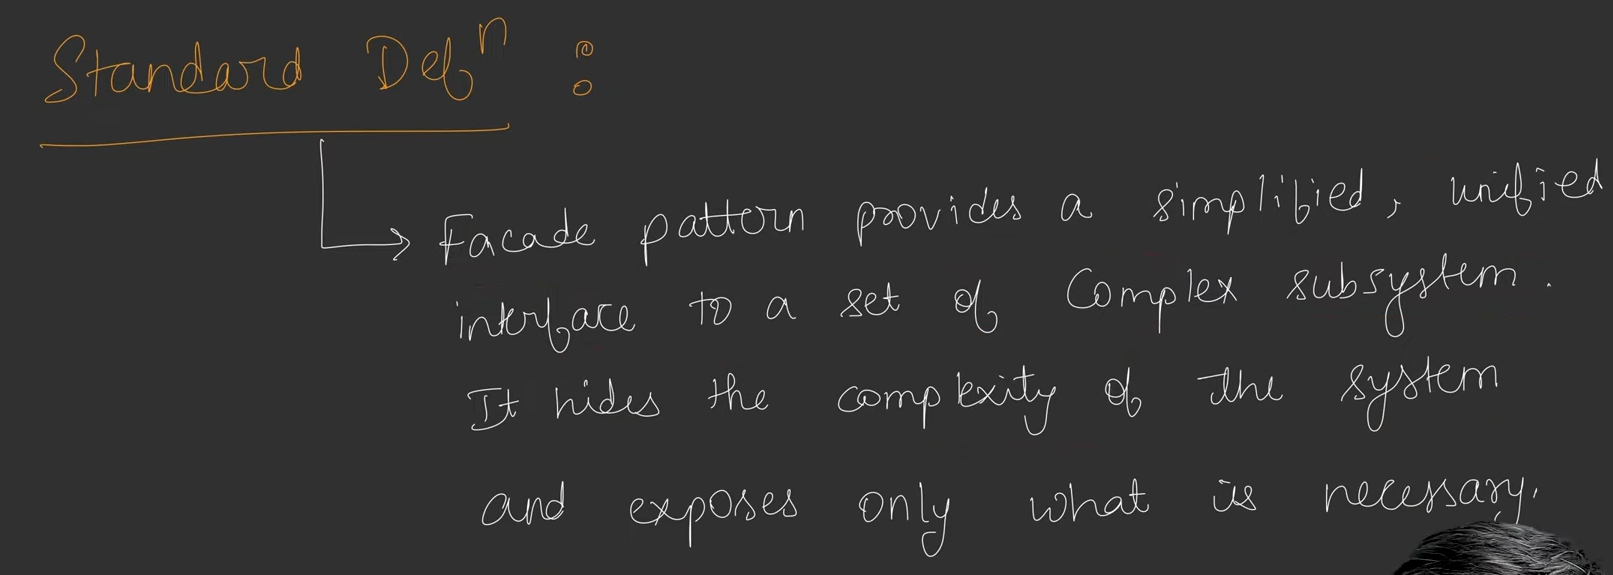 Standard Defⁿ :
Facade pattern provides a simplified, unified
interface to a set of Complex subsystem.
It hides the complexity of the system
and exposes only what is necessary.